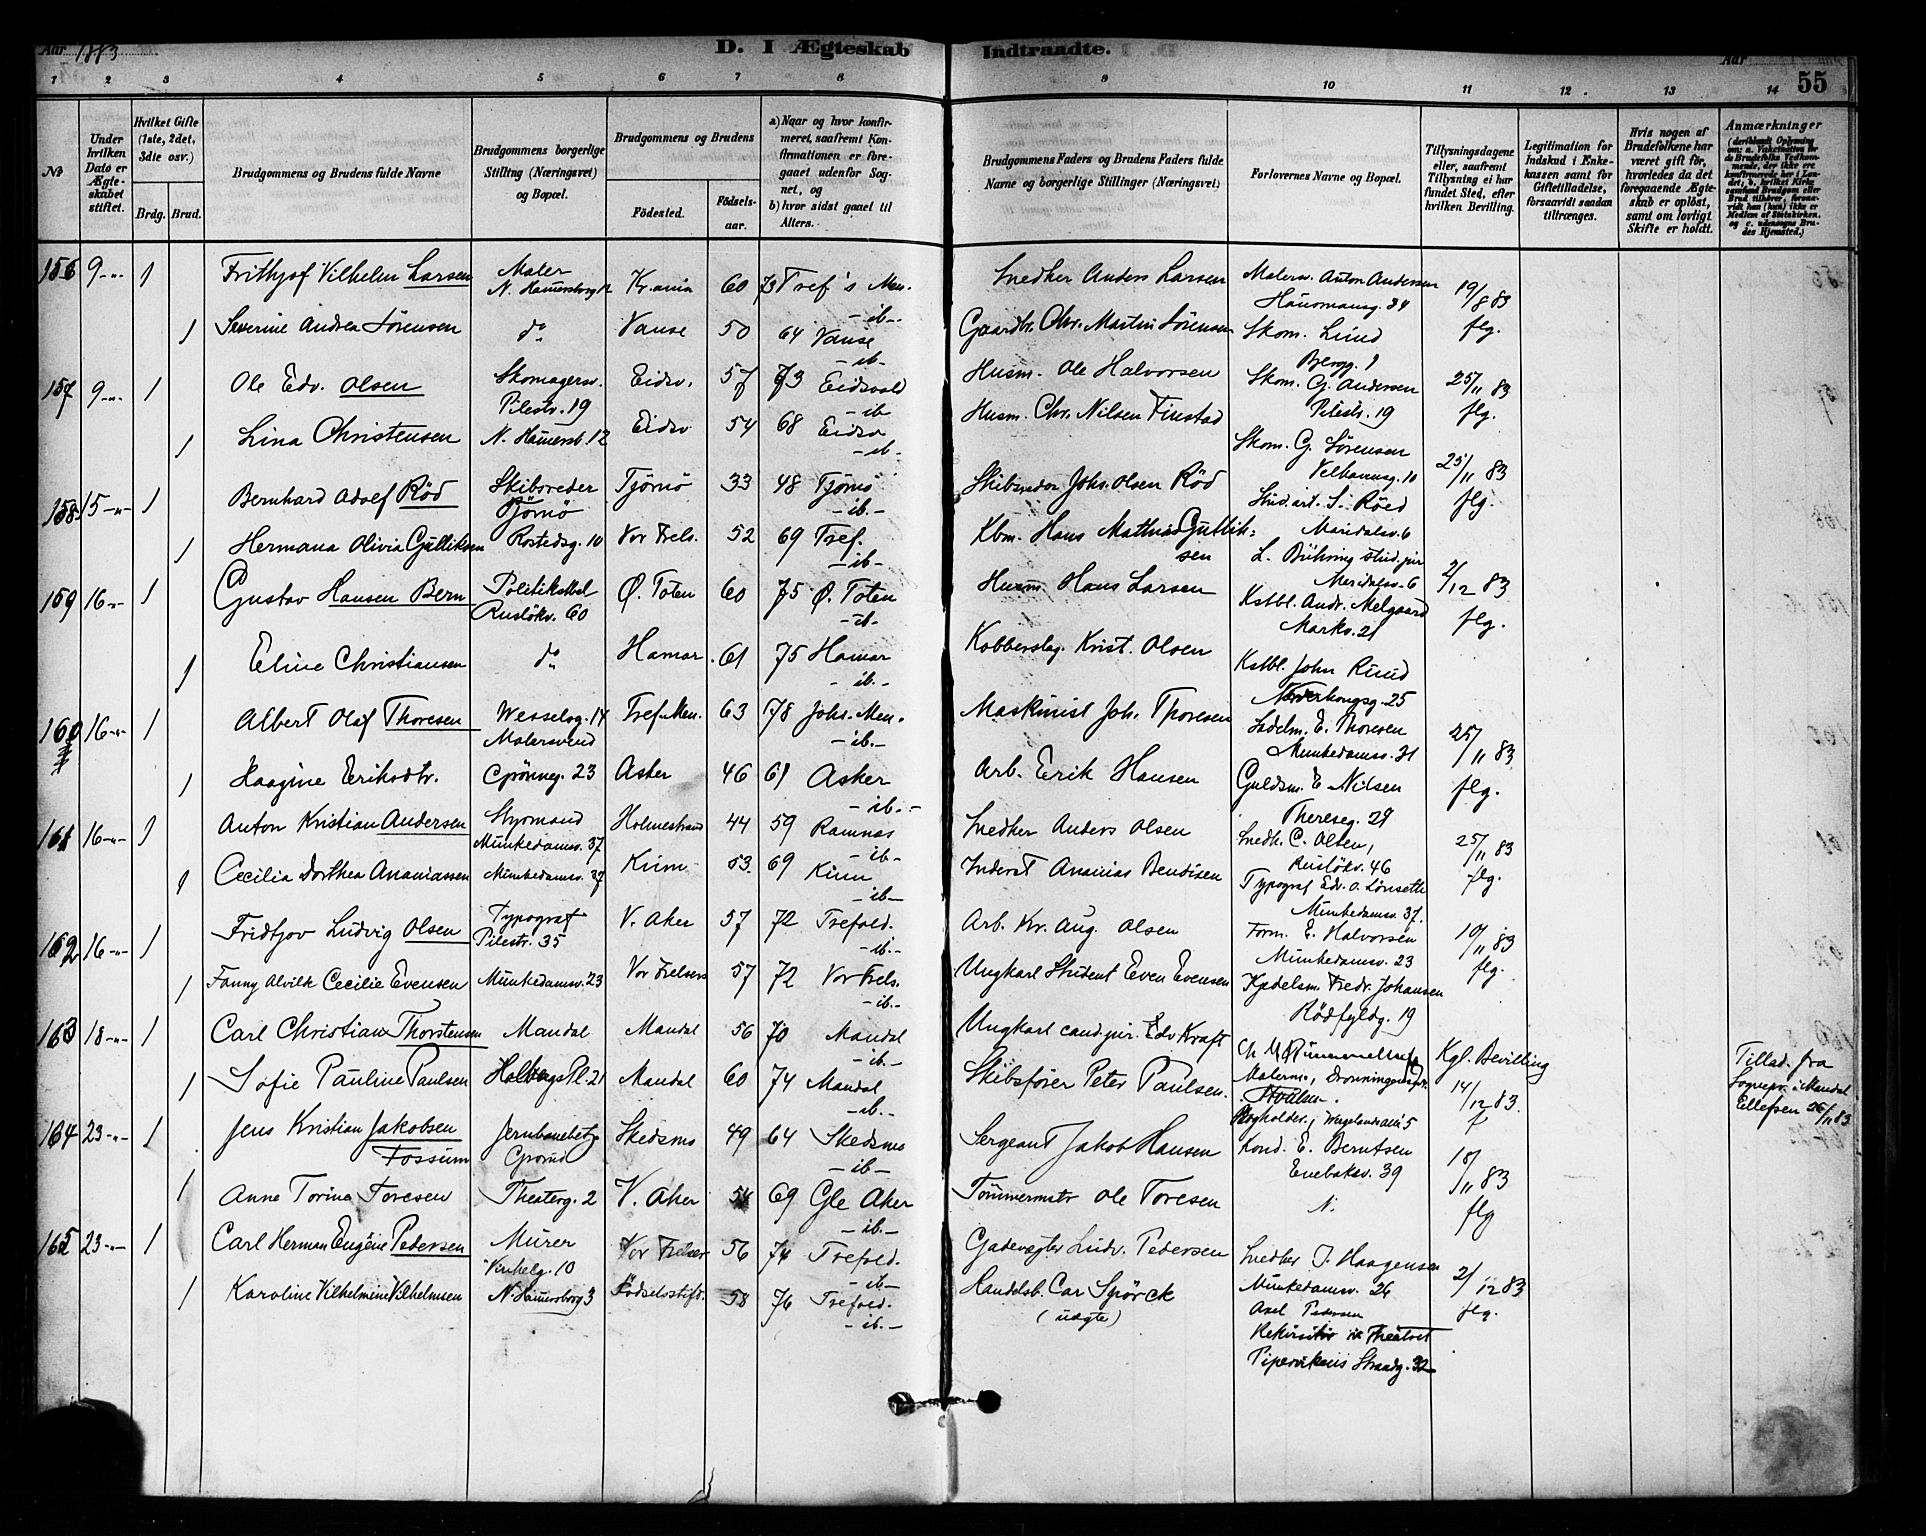 Aar 1883
D. I Ægteskab Indtraadte.
Aar
55
1 2 3 4 5 6 7 8 9 10 11 12 13 14
No
Under hvilken Dato er Ægteskabet stiftet.
Hvilket Gifte (1ste, 2det, 3die osv.)
Brdg. Brud.
Brudgommens og Brudens fulde Navne
Brudgommens borgerlige Stilling (Næringsvei) og Bopæl.
Brudgommens og Brudens
Födested.
Födselsaar.
a) Naar og hvor konfirmeret, saafremt Konfirmationen er foregaaet udenfor Sognet, og
b) hvor sidst gaaet til Alters.
Brudgommens Faders og Brudens Faders fulde Navne og borgerlige Stillinger (Næringsvei)
Forlovernes Navne og Bopæl.
Tillysningsdagene eller, saafremt Tillysning ei har fundet Sted, efter hvilken Bevilling.
Legitimation for Indskud i Enkekassen samt for Giftetilladelse, forsaavidt saadan tiltrænges.
Hvis nogen af Brudefolkene har været gift før, hvorledes da det foregaaende Ægteskab er oplöst, samt om lovligt Skifte er holdt.
Anmærkninger
(deriblandt Oplysning om: a. Vakcination for de Brudefolks Vedkommende, der ikke ere konfirmerede her i Landet; b. hvilket Kirkesamfund Brudgom eller Brud tilhører, forsaavidt han (hun) ikke er Medlem af Statskirken, og c. udensogns Brudes Hjemsted.)
156 9-"- 1 Frithjof Vilhelm Larsen Maler N. Hamersborg 12 Kr.ania 60 73 Tref's Men. -ib- Snedker Anders Larsen Malersv. Anton Andersen Hausmansg. 34 19/8 83
1 Severine Andrea Sörensen do Vanse 50 64 Vanse -ib- Gaardbr. Chr. Martin Sörensen Skom. Lund Bjergg. 1 flg.
157 9-"- 1 Ole Edv. Olsen Skomagersv. Pilestr. 19 Eidsv. 57 73 Eidsvold -ib- Husm. Ole Halvorsen Skom. G. Andersen Pilestr. 19 25/11 83 flg.
1 Lina Christensen N. Hamersb. 12 Eidsv 54 68 Eidsv -ib- Husm. Chr. Nilsen Finstad Skom. G. Sörensen Velhavensg. 10
158 15-"- 1 Bernhard Adolf Röd Skibsreder Tjömö Tjömö 33 48 Tjömö -ib.- Skibsreder Johs. Olsen Röd Stud. art. S. Röed Maridalsv. 6 25/11 83 flg.
1 Hermana Olivia Gulliksen Rostedsg. 10 Vor Frels. 52 69 Tref. -ib- Kbm. Hans Mathias Gulliksen L. Bühring stud. jur Maridalsv. 6
159 16-"- 1 Gustav Hansen Bern Politikstbl Ruslökv. 60 Ø. Toten 60 75 Ø. Toten -ib- Husm. Hans Larsen Kstbl. Andr. Melgaard Markv. 21 2/12 83 flg.
1 Eline Christiansen do Hamar 61 75 Hamar -ib.- Kobberslag. Krist. Olsen Kstbl. John Ruud Norderhougsg. 25
160 16-"- 1 Albert Olaf Thoresen Wesselsg. 14 Malersvend Tref. Men. 63 78 Johs. Men. -ib.- Maskinist Joh. Thoresen Sadelm. E. Thoresen Munkedamsv. 31 25/11 83
1 Haagine Eriksdtr. Grönneg. 23 Asker 46 61 Asker -ib.- Arb. Erik Hansen Guldsm. E Nilsen Thereseg. 29 flg.
161 16-"- 1 Anton Kristian Andersen Styrmand Munkedamsv. 37 Holmestrand 44 59 Ramnæs -ib- Snedker Anders Olsen Snedk. C. Olsen, Ruslökv. 46 25/11 83
1 Cecilia Dorthea Ananiassen Munkedamsv. 37 Kinn 53. 69 Kinn -ib- Inderst Ananias Bendixen Typograf Edv. O. Lönseth Munkedamsv. 37. flg.
162 16-"- 1 Fridtjov Ludvig Olsen Typograf Pilestr. 35 V. Aker 57 72 Trefold. -ib.- Arb. Kr. Aug. Olsen Form. E. Halvorsen Munkedamsv. 23 18/11 83
1 Fanny Alvilde Cecilie Evensen Munkedamsv. 23 Vor Frelsers 57 72 Vor Frels. -ib.- Ungkarl Student Even Evensen Kjedelsm. Fredr. Johansen Rödfyldg. 19 flg.
163 18-"- 1 Carl Christian Thorstensen Mandal Mandal 56 70 Mandal -ib.- Ungkarl cand. jur. Edv Kraft Malerm., Dronningensgt. Kgl. Bevilling Tillad. fra Sognepr. i Mandal Ellefsen 26/11 83
1 Sofie Pauline Paulsen Holbergs Pl. 21 Mandal 60 74 Mandal -ib.- Skibsförer Peter Paulsen. Bogholder, Wergelandsvei 5 14/12 83.
164 23-"- 1 Jens Kristian Jakobsen Fossum Jernbanebetj Grorud Skedsmo 49 64 Skedsmo -ib- Sergeant Jakob Hansen Kond. E. Berntsen Enebakv. 39 18/11 83
1 Anne Torine Toresen Theaterg. 2 V. Aker 54 69 Gle Aker -ib.- Tömmermstr Ole Toresen N. flg
165 23-"- 1 Carl Herman Eugène Pedersen Murer Vinkelg. 10 Vor Frelser 56 74 Trefold. -ib- Gadevægter Ludv. Pedersen Snedker J. Haagensen Munkedamsv. 26 2/12 83
1 Karoline Vilhelmine Vilhelmsen N. Hamersborg 3 Födselsstift. 58 76 Trefold. -ib.- Handelsb. Car Spörck (uægte) Axel Pedersen Rekvisitör v. Theatret Pipervikens Strandg. 32 flg.